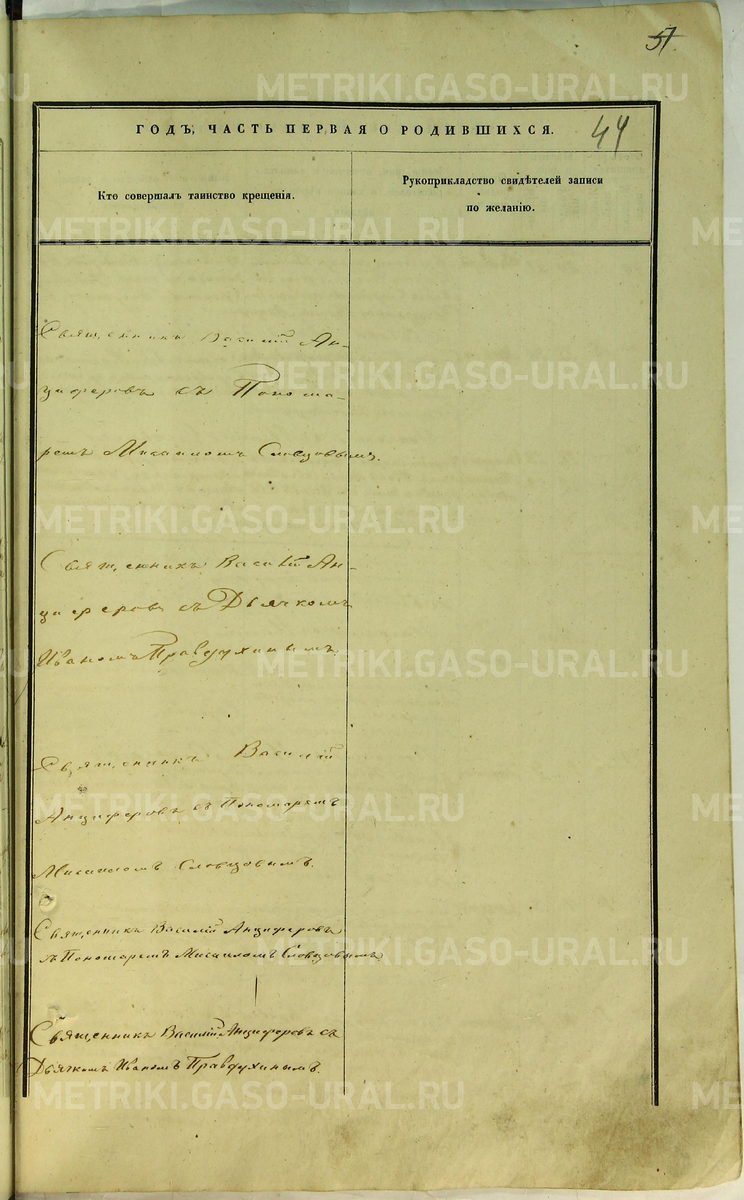 57.
ГОДЪ, ЧАСТЬ ПЕРВАЯ О РОДИВШИХСЯ.
44
Кто совершалъ таинство крещенія.
Рукоприкладство свидѣтелей записи
по желанію.
Священникъ Василій Ан-
циферовъ съ Понома-
ремъ Михаиломъ Словцовымъ.
Священникъ Василій Ан-
циферовъ съ Дьячкомъ
Иваномъ Правдухинымъ.
Священникъ Василій
Анциферовъ съ Пономаремъ
Михаиломъ Словцовымъ.
Священникъ Василій Анциферовъ
съ Пономаремъ Михаиломъ Словцовымъ
Священникъ Василій Анциферовъ съ
Дьячкомъ Иваномъ Правдухинымъ.
METRIKI.GASO-URAL.RU